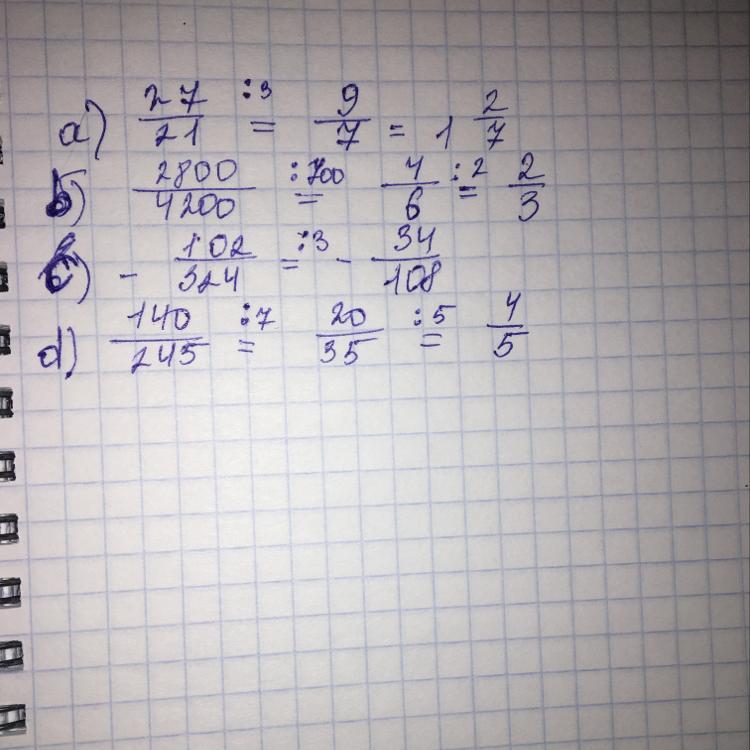 a) 27/21 :3 = 9/7 = 1 2/7
b) 2800/4200 :700 = 4/6 :2 = 2/3
c) - 102/324 :3 = - 34/108
d) 140/245 :7 = 20/35 :5 = 4/5